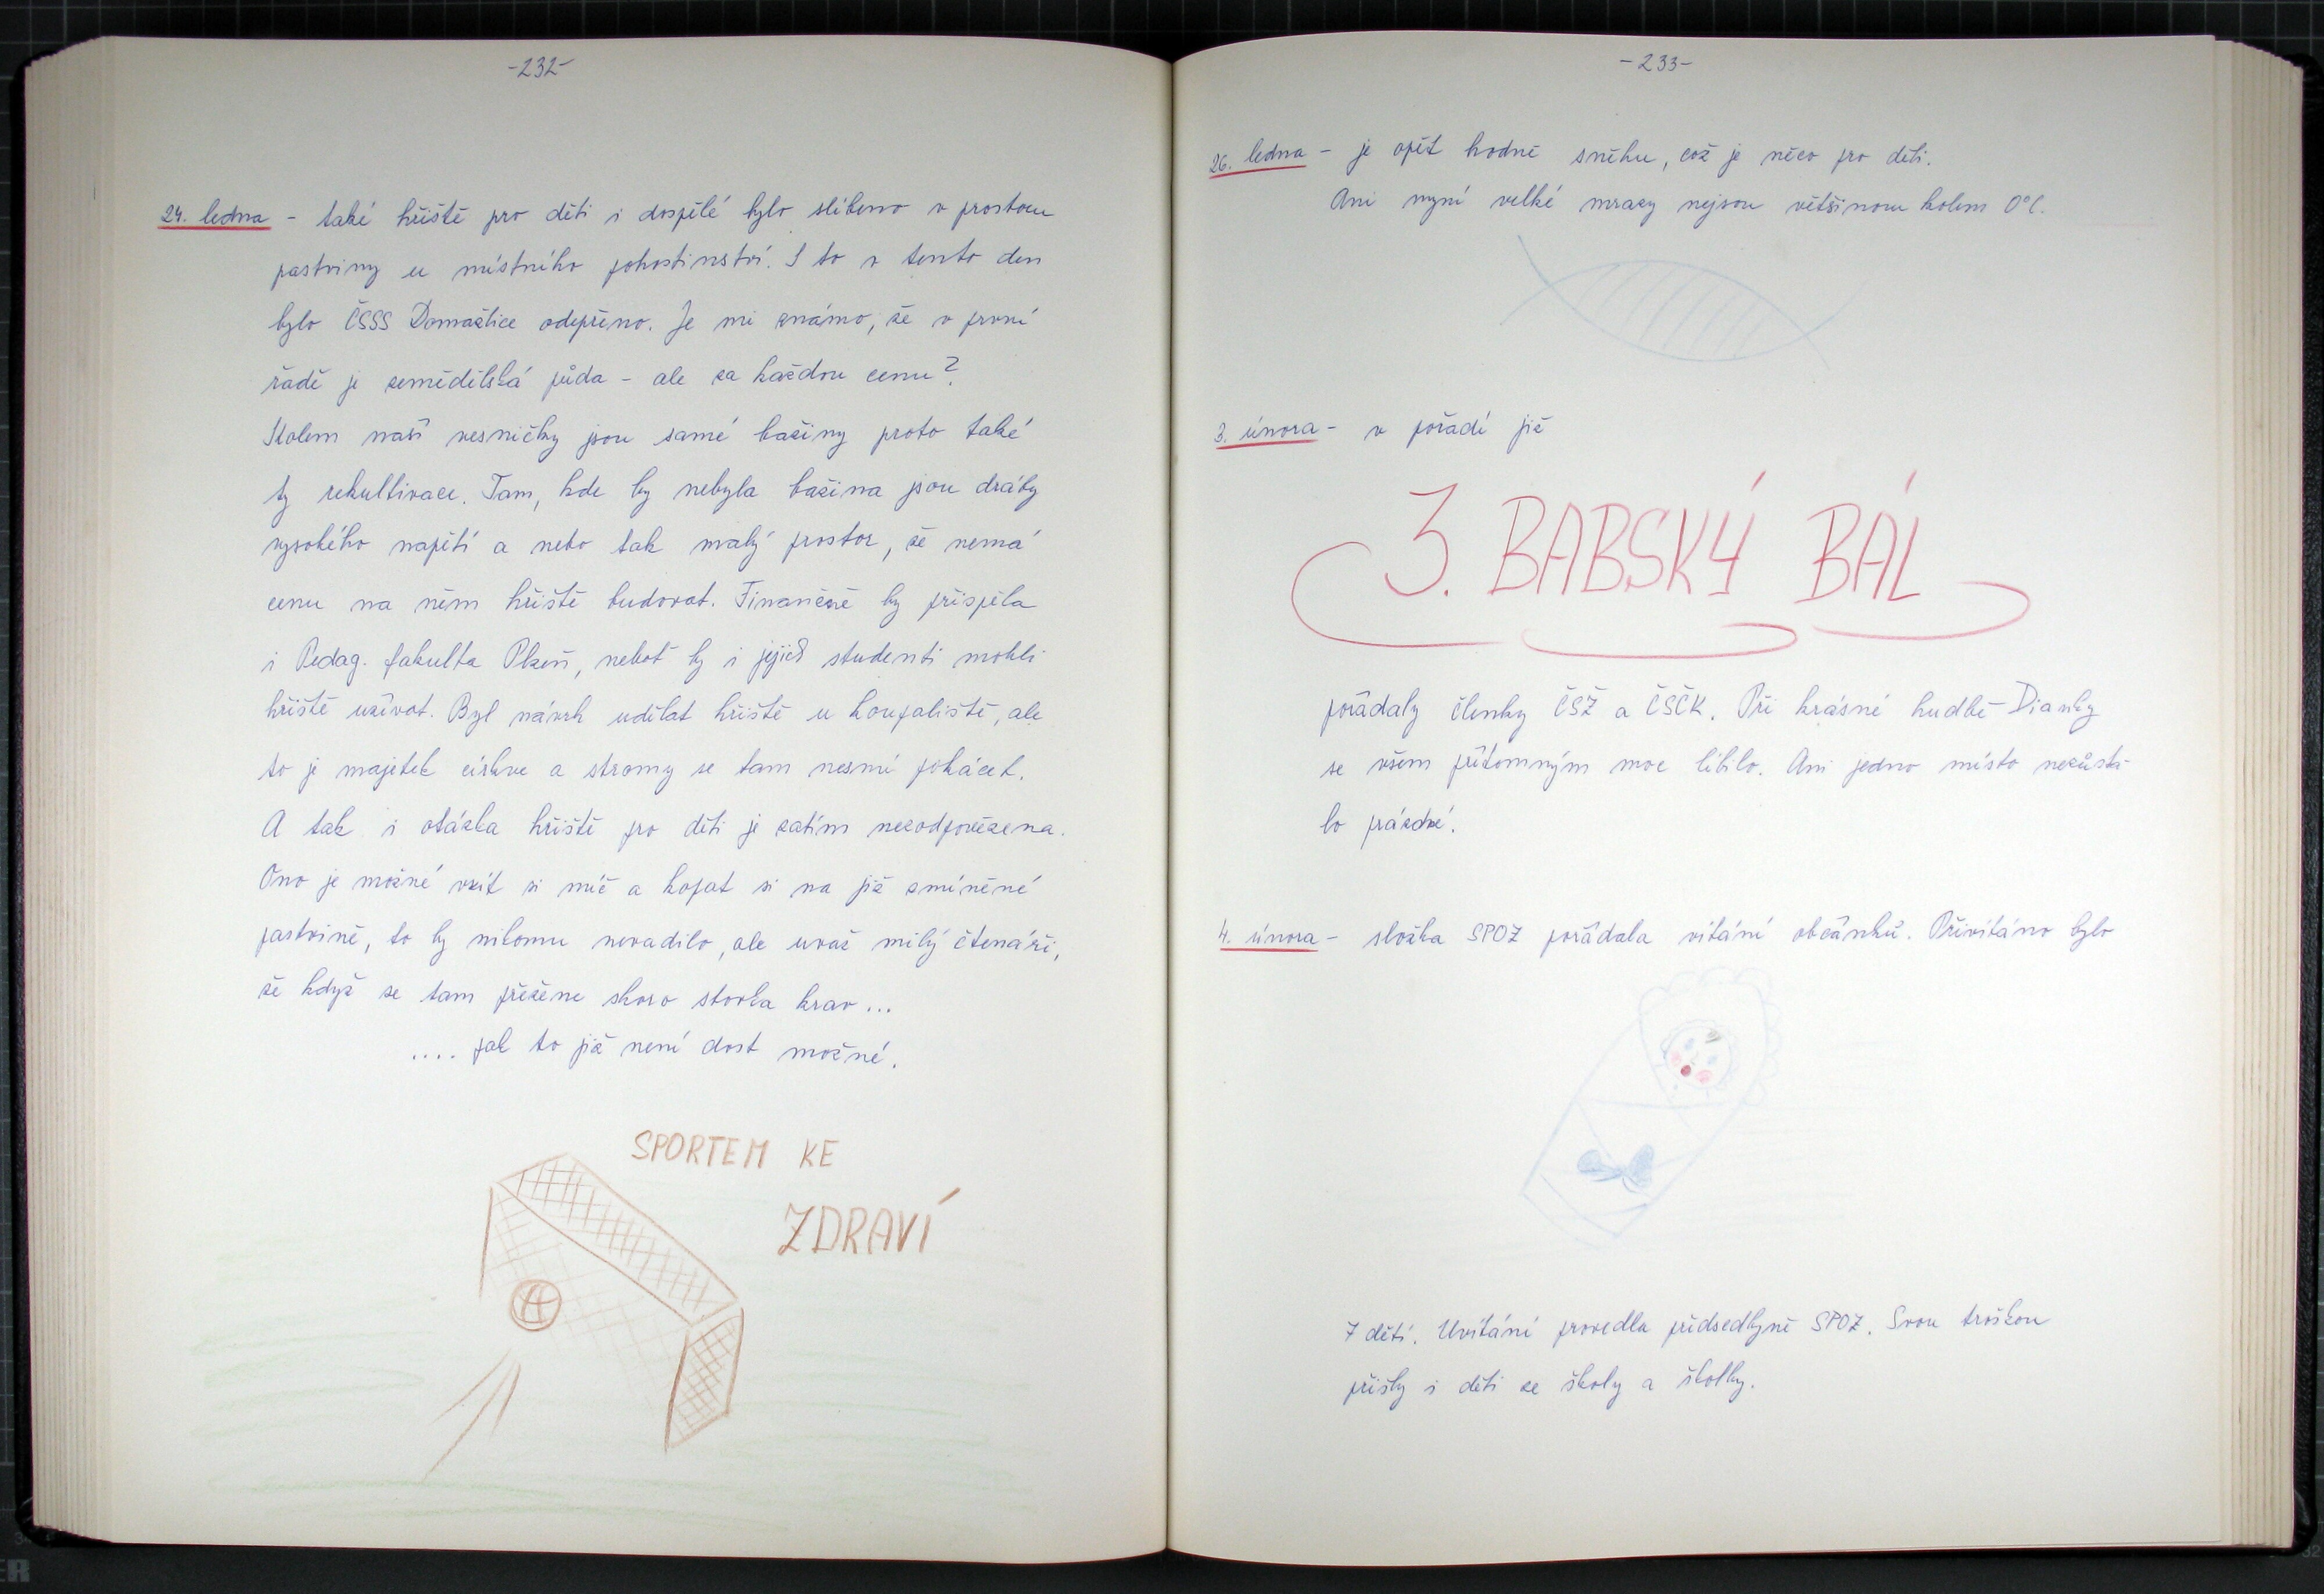 -232-
24. ledna - také hřiště pro děti i dospělé bylo slíbeno v prostou
pastviny u místního pohostinství. I to v tento den
bylo ČSSS Domažlice odepřeno. Je mi známo, že v první
řadě je zemědělská půda - ale za každou cenu?
Kolem naší vesničky jsou samé bažiny proto také
ty rekultivace. Tam, kde by nebyla bažina jsou dráty
vysokého napětí a nebo tak malý prostor, že nemá
cenu na něm hřiště budovat. Finančně by přispěla
i Pedag. fakulta Plzeň, neboť by i jejich studenti mohli
hřiště užívat. Byl návrh udělat hřiště u koupaliště, ale
to je majetek církve a stromy se tam nesmí pokácet.
A tak i otázka hřiště pro děti je zatím nezodpovězena.
Ono je možné vzít si míč a kopat si na již zmíněné
pastvině, to by nikomu nevadilo, ale uvaž milý čtenáři,
že když se tam přežene skoro stovka krav...
.... pak to již není dost možné.
SPORTEM KE
ZDRAVÍ
-233-
26. ledna - je opět hodně sněhu, což je něco pro děti.
Ani nyní velké mrazy nejsou většinou kolem 0°C.
3. února - v pořadí již
3. BABSKÝ BÁL
pořádaly členky ČSŽ a ČSČK. Při krásné hudbě - Dianky
se všem přítomným moc líbilo. Ani jedno místo nezůsta-
lo prázdné.
4. února - složka SPOZ pořádala vítání občánků. Přivítáno bylo
7 dětí. Uvítání provedla předsedkyně SPOZ. Svou troškou
přišly i děti ze školy a školky.